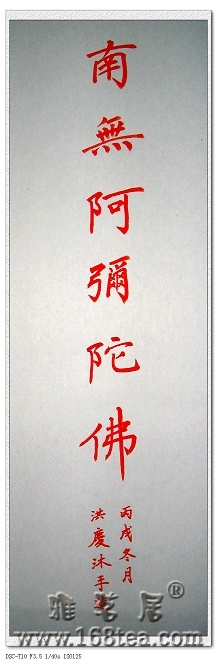 南無阿彌陀佛
丙戌冬月
洪慶沐手
雅茗居®
www.168tea.com
DSC-T10 F3.5 1/40s ISO125